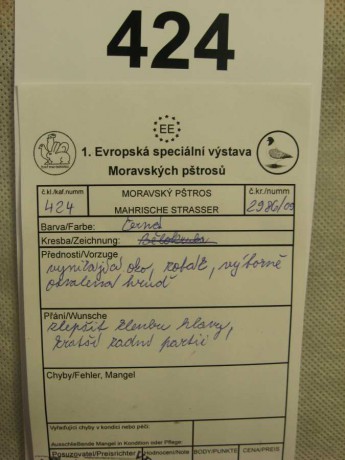 424
EE
1. Evropská speciální výstava
Moravských pštrosů
č.kl./kaf.numm
MORAVSKÝ PŠTROS
č.kr./numm
424
MAHRISCHE STRASSER
2986/09
Barva/Farbe: černá
Kresba/Zeichnung:
Přednosti/Vorzuge
vynikající oko, zobák, výborně
osvalená hruď
Přání/Wunsche
zlepšit klenbu hlavy,
kratší zadní partii
Chyby/Fehler, Mangel
Vylučující chyby v kondici nebo péči:
Ausschließende Mangel in Kondition oder Pflege:
Posuzovatel/Preisrichter
Hodnocení/Note
BODY/PUNKTE
CENA/PREIS